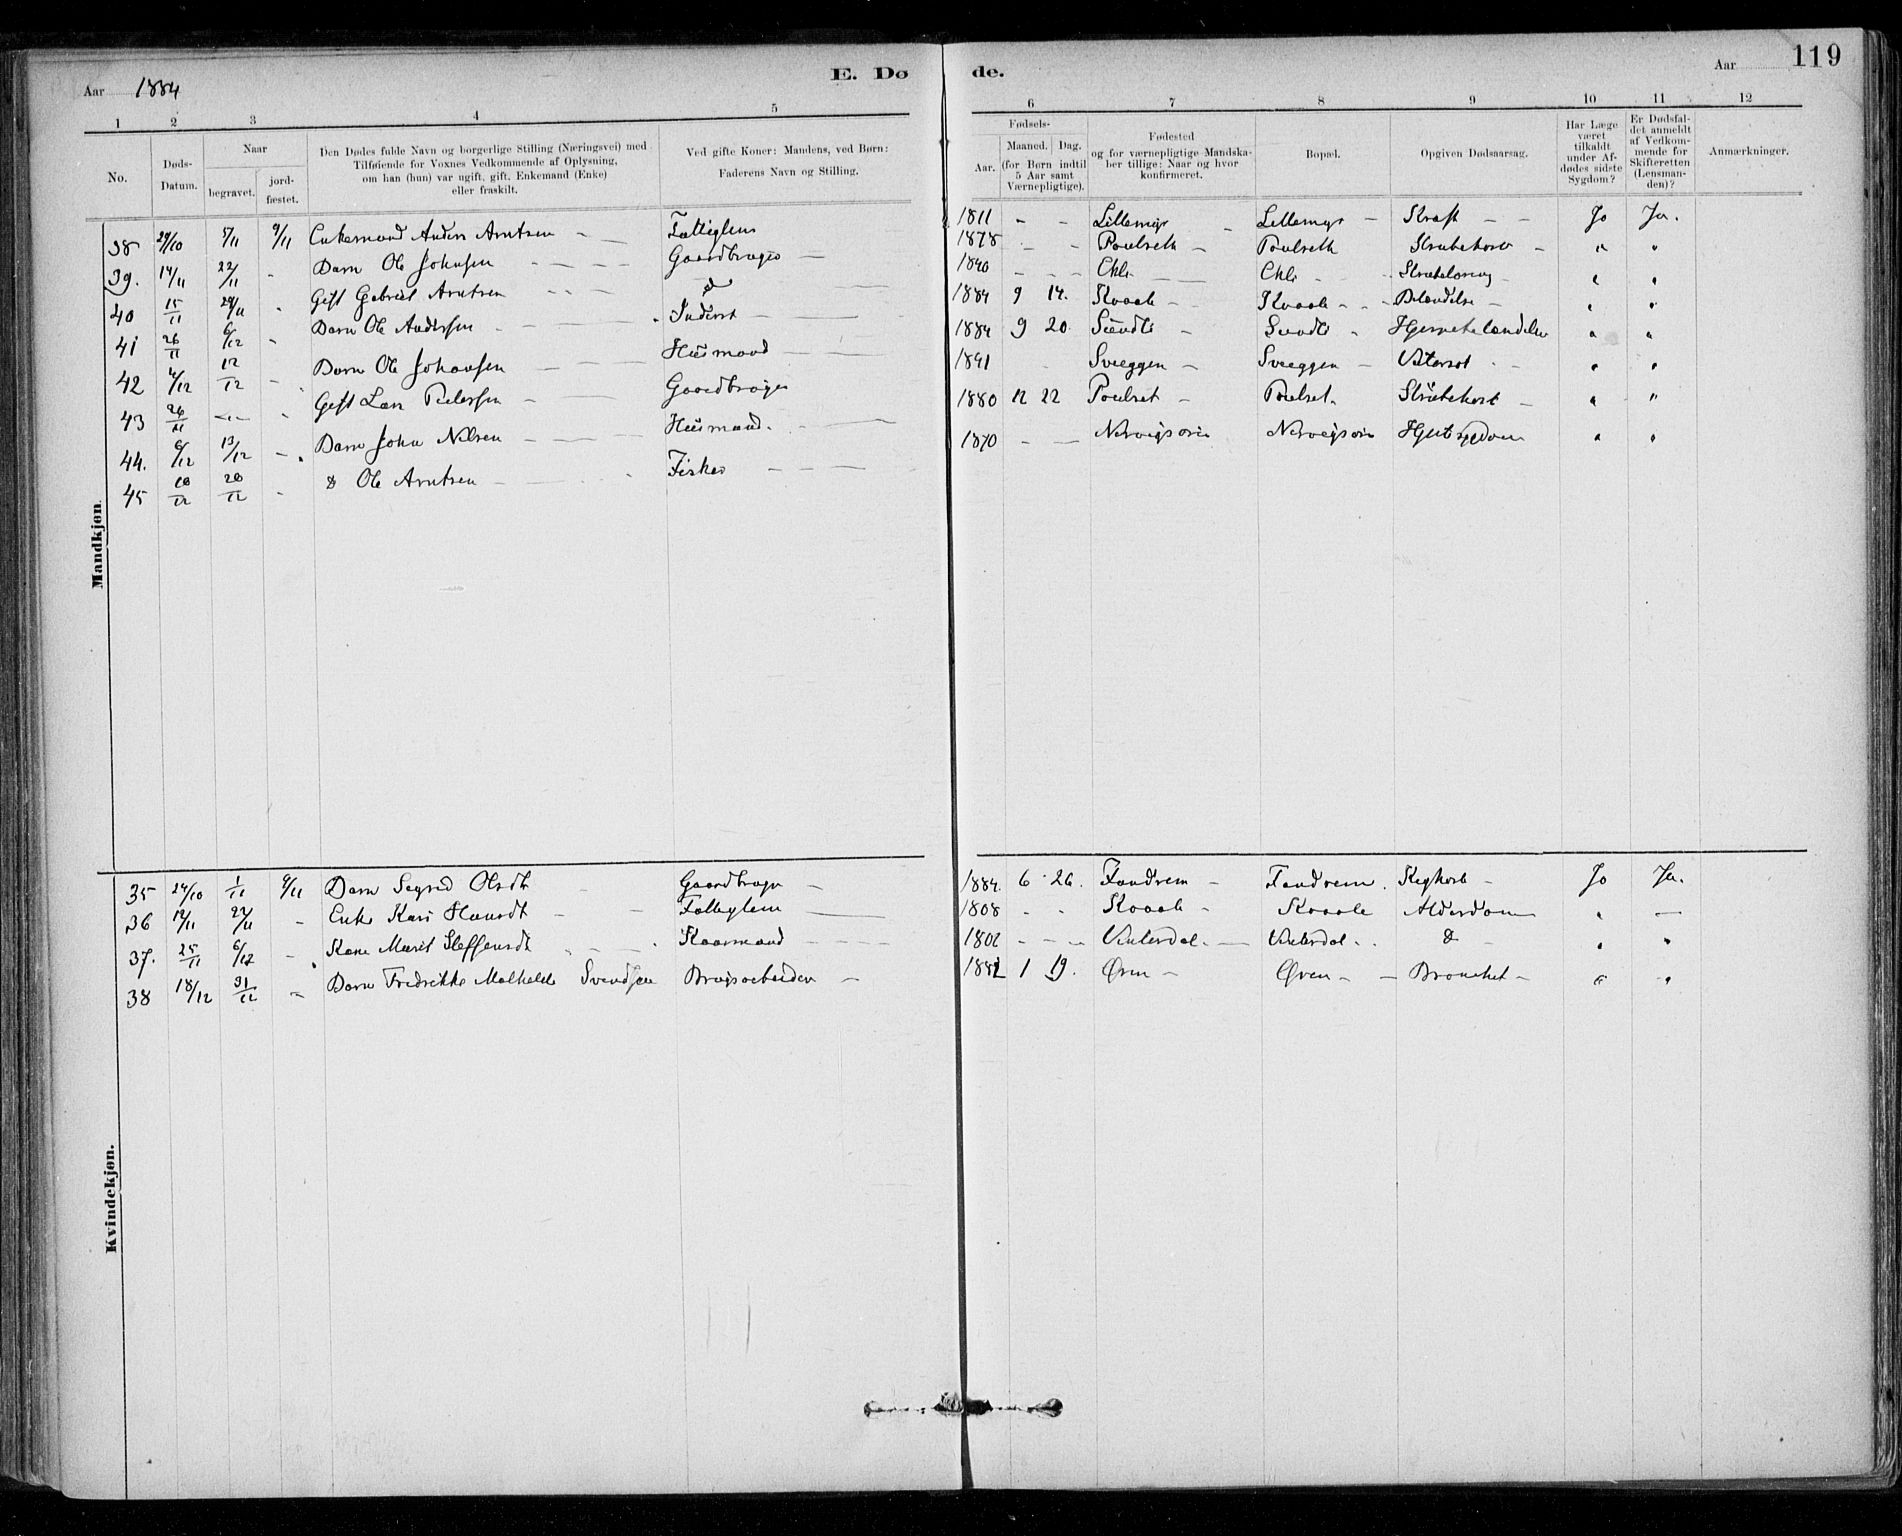 119
Aar 1884 E. Dø de. Aar
1 2 3 4 5 6 7 8 9 10 11 12
No.
Døds-Datum.
Naar
begravet. jord-fæstet.
Den Dødes fulde Navn og borgerlige Stilling (Næringsvei) med
Tilføiende for Voxnes Vedkommende af Oplysning,
om han (hun) var ugift, gift, Enkemand (Enke)
eller fraskilt.
Ved gifte Koner: Mandens, ved Børn:
Faderens Navn og Stilling.
Fødsels-
Aar. Maaned. Dag.
(for Børn indtil
5 Aar samt
Værnepligtige).
Fødested
og for værnepligtige Mandska-
ber tillige: Naar og hvor
konfirmeret.
Bopæl.
Opgiven Dødsaarsag.
Har Læge
været
tilkaldt
under Af-
dødes sidste
Sygdom?
Er Dødsfal-
det anmeldt
af Vedkom-
mende for
Skifteretten
(Lensman-
den)?
Anmærkninger.
Mandkjøn.
38 29/10 5/11 9/11 Enkemand Anders Arntsen Fattiglem 1811 - - Lillemyr - Lillemyr - Kræft - - Ja Ja.
39. 14/11 22/11 " Barn Ole Johnsen - Gaardbruger - 1878 - - Poulseth - Poulseth Strubehoste - " "
40 15/11 29/11 " Gift Gabriel Arntsen d 1840 - - - " "
41 26/11 6/12 " Barn Ole Andersen - Inderst - 1884 9 14. Kvaale - Kvaale - - " "
42 4/12 12/12 - Barn Ole Johansen - Husmand - 1884 9 20. Sundli - Sundli " "
43 26/11 -"- " Gift Lars Pedersen - Gaardbruger 1841 Sveggen - Sveggen - " "
44. 6/12 13/12 - Barn John Nilsen - Husmand. 1880 12 22 Poulset - Poulset. Strubehoste - " "
45 10/12 20/12 - d Ole Arntsen - Fisker - - 1870 - - " "
Kvindekjøn.
35 24/10 1/11 9/11 Barn Sigrid Olsdt - Gaardbruger - 1884. 6 26. Fandrem - Fandrem. Kighoste - Ja Ja.
36 12/11 22/11 - Enke Kari Hansdt - Fattiglem - 1808 - - Kvaale - Kvaale Alderdom " -
37. 25/11 6/12 - Kone Marit Steffensdt - Kaarmand - 1802 - - - Vinterdal. - Vinterdal. d - " "
38 18/12 31/12 - Barn Fredrikke Mathilde Svendsen Brugsarbeider - 1882 1 19. Øren - Øren - - Bronchit - " "